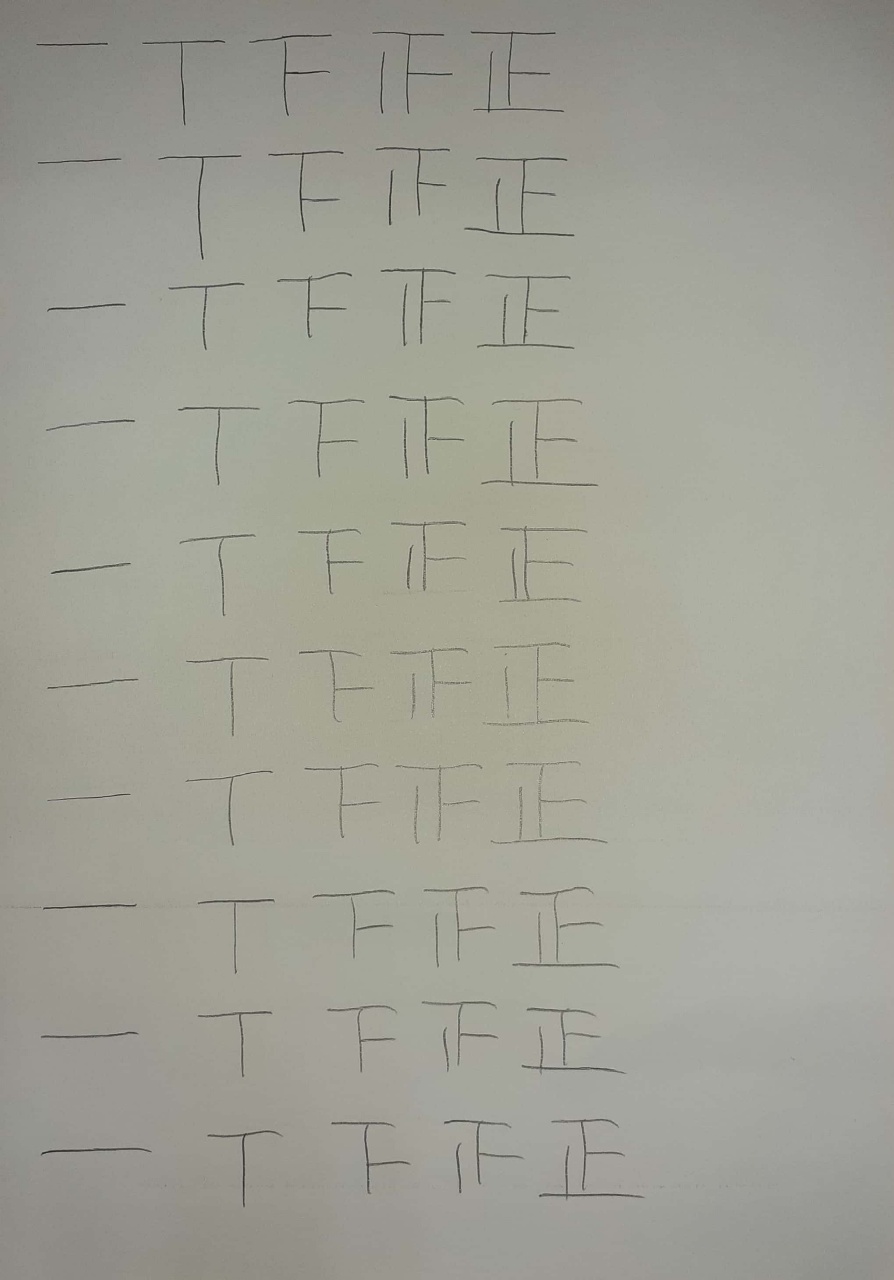 一 丅 下 止 正
一 丅 下 止 正
一 丅 下 止 正
一 丅 下 止 正
一 丅 下 止 正
一 丅 下 止 正
一 丅 下 止 正
一 丅 下 止 正
一 丅 下 止 正
一 丅 下 止 正